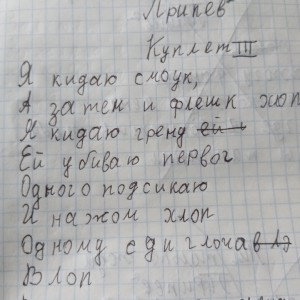 Припев
Куплет III
Я кидаю смоук,
А затем и флешк хлоп
Я кидаю гренд
Ей убиваю первог
Одного подсикаю
И нажом хлоп
Одному с диглоча
В лоп